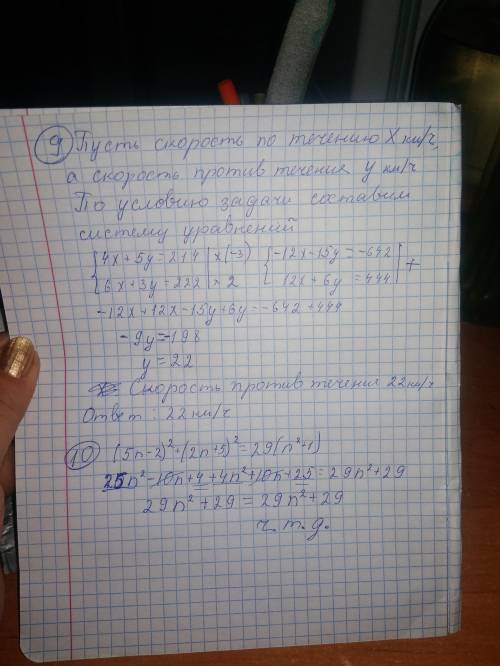 9 Пусть скорость по течению X км/ч,
а скорость против течения y км/ч
По условию задачи составим
систему уравнений
{4x+5y=214 | x(-3) {-12x-15y=-642
{6x+3y=222 | x 2 {12x+6y=444 | +
-12x+12x-15y+6y=-642+444
-9y=-198
y=22
Скорость против течения 22 км/ч
Ответ: 22 км/ч
10 (5n-2)²+(2n+5)²=29(n²+1)
25n²-10n+4+4n²+10n+25=29n²+29
29n²+29=29n²+29
ч.т.д.